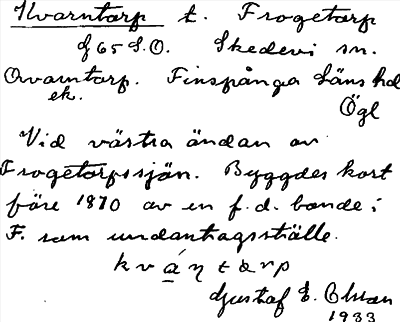 Kvarntorp t. Frogetorp
f 65 S.O. Skedevi sn.
Qvarntorp. Finspånga läns hd
ek. Ögl
Vid västra ändan av
Frogetorpssjön. Byggdes kort
före 1870 av en f.d. bonde i
F. som undantagsställe.
kváṇtɷrp
Gustaf E. Olsson
1933